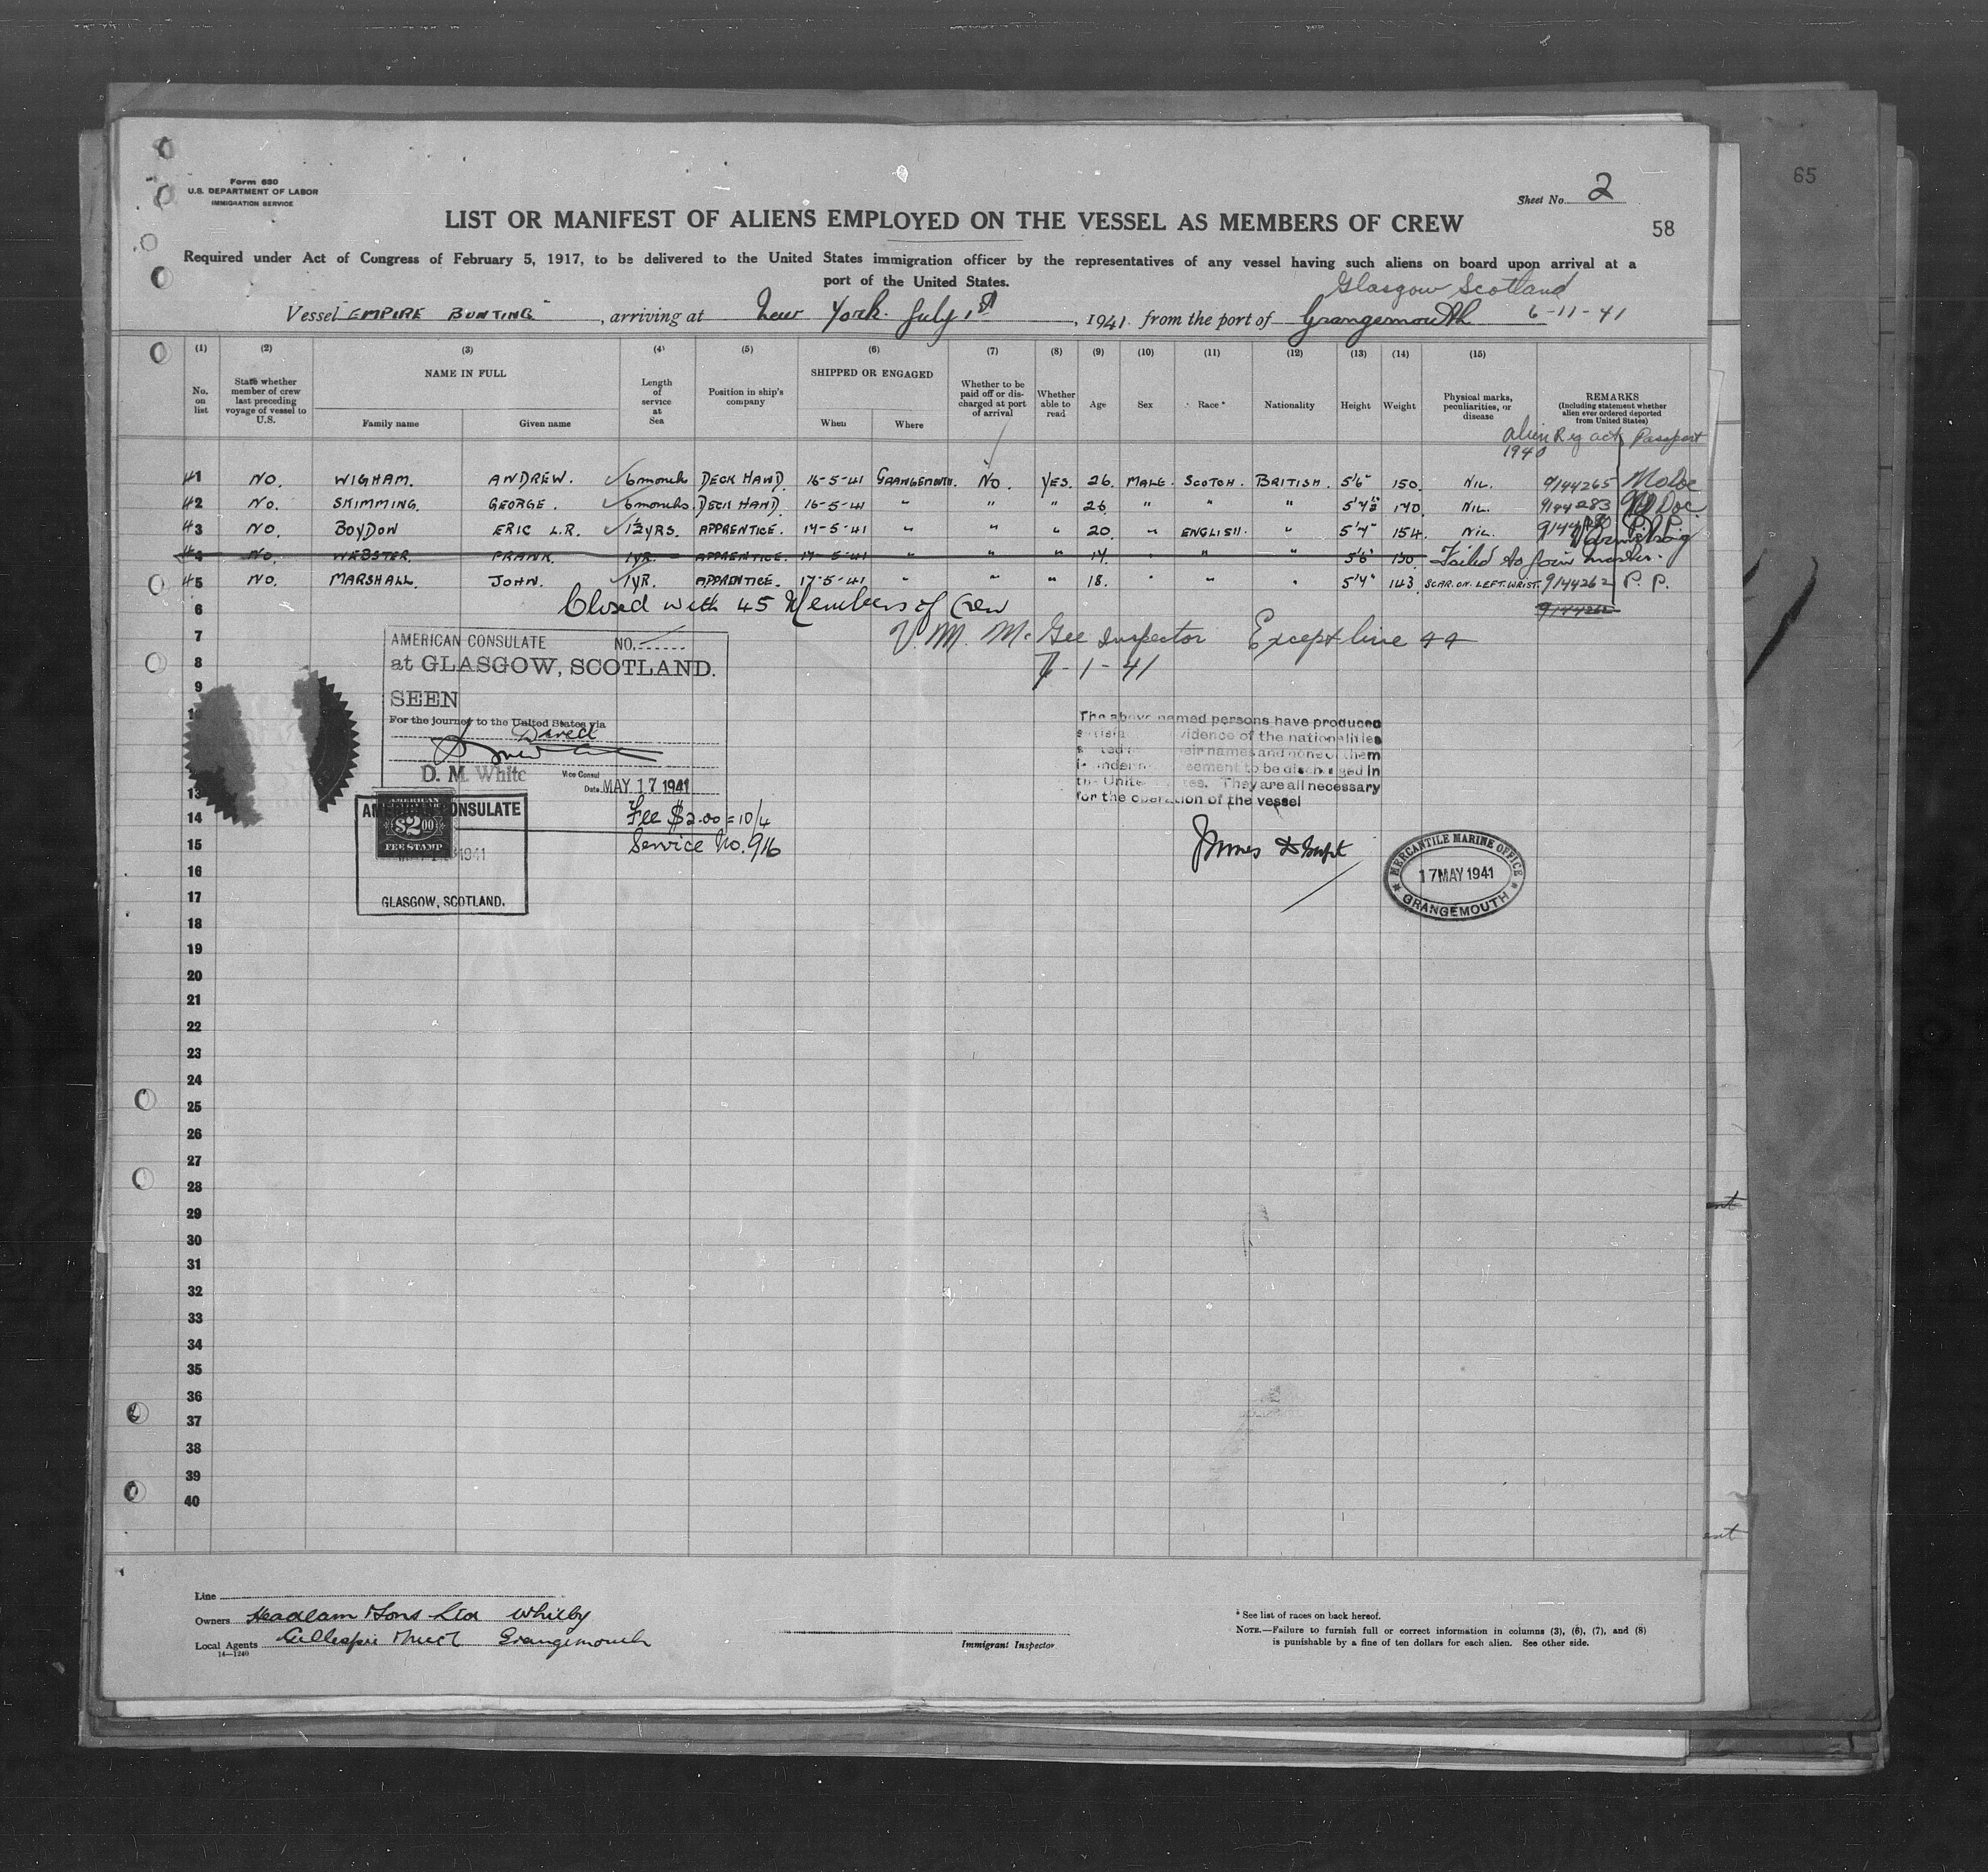 65
Form 680
U.S. DEPARTMENT OF LABOR
IMMIGRATION SERVICE
Sheet No. 2
LIST OR MANIFEST OF ALIENS EMPLOYED ON THE VESSEL AS MEMBERS OF CREW
58
Required under Act of Congress of February 5, 1917, to be delivered to the United States immigration officer by the representatives of any vessel having such aliens on board upon arrival at a
port of the United States.
Glasgow Scotland
Vessel "EMPIRE BUNTING", arriving at New York July 1st, 1941 from the port of Grangemouth 6-11-41
(1) (2) (3) (4) (5) (6) (7) (8) (9) (10) (11) (12) (13) (14) (15)
No. on list
State whether member of crew last preceding voyage of vessel to U.S.
NAME IN FULL
Family name
Given name
Length of service at Sea
Position in ship's company
SHIPPED OR ENGAGED
When
Where
Whether to be paid off or discharged at port of arrival
Whether able to read
Age
Sex
Race*
Nationality
Height
Weight
Physical marks, peculiarities, or disease
REMARKS
(Including statement whether alien ever ordered deported from United States)
Alien Reg act 1940 Passport
41 NO. WIGHAM. ANDREW. 6 months DECK HAND. 16-5-41 GRANGEMOUTH. NO. YES. 26. MALE. SCOTCH. BRITISH. 5'6" 150. NIL. 9144265 No Doc
42 NO. SKIMMING. GEORGE. 6 months. DECK HAND. 16-5-41 " " " 26 " " " 5'4½" 140. NIL. 9144283 No Doc.
43 NO. BOYDON ERIC L.R. 1½ YRS. APPRENTICE. 17-5-41 " " " 20. " ENGLISH. " 5'4" 154. NIL. P.P.
44 NO. WEBSTER. FRANK. 1 YR. APPRENTICE. 17-5-41 " " " 17. " " " 5'6" 130 Failed to join master.
45 NO. MARSHALL. JOHN. 1 YR. APPRENTICE. 17-5-41 " " " 18. " " " 5'4" 143 SCAR. ON. LEFT. WRIST. 9144262 P. P.
6 Closed with 45 Members of Crew 9144262
7 V. M. McGee Inspector Except line 44
8 7-1-41
9
10
13
14
15
16
17
18
19
20
21
22
23
24
25
26
27
28
29
30
31
32
33
34
35
36
37
38
39
40
AMERICAN CONSULATE NO.
at GLASGOW, SCOTLAND.
SEEN
For the journey to the United States via
Direct
D. M. White
Vice Consul
Date MAY 17 1941
Fee $2.00 = 10/4
Service No. 916
AMERICAN CONSULATE
AMERICAN
$2.00
FEE STAMP
1941
GLASGOW, SCOTLAND.
The above named persons have produced
evidence of the nationalities
their names and none of them
to be discharged in
the United States. They are all necessary
for the operation of the vessel
James
MERCANTILE MARINE OFFICE
17 MAY 1941
GRANGEMOUTH
Line
Owners Headlam & Sons Ltd Whitby
Local Agents Gillespie Grangemouth
14—1240
Immigrant Inspector
* See list of races on back hereof.
NOTE.—Failure to furnish full or correct information in columns (3), (6), (7), and (8)
is punishable by a fine of ten dollars for each alien. See other side.